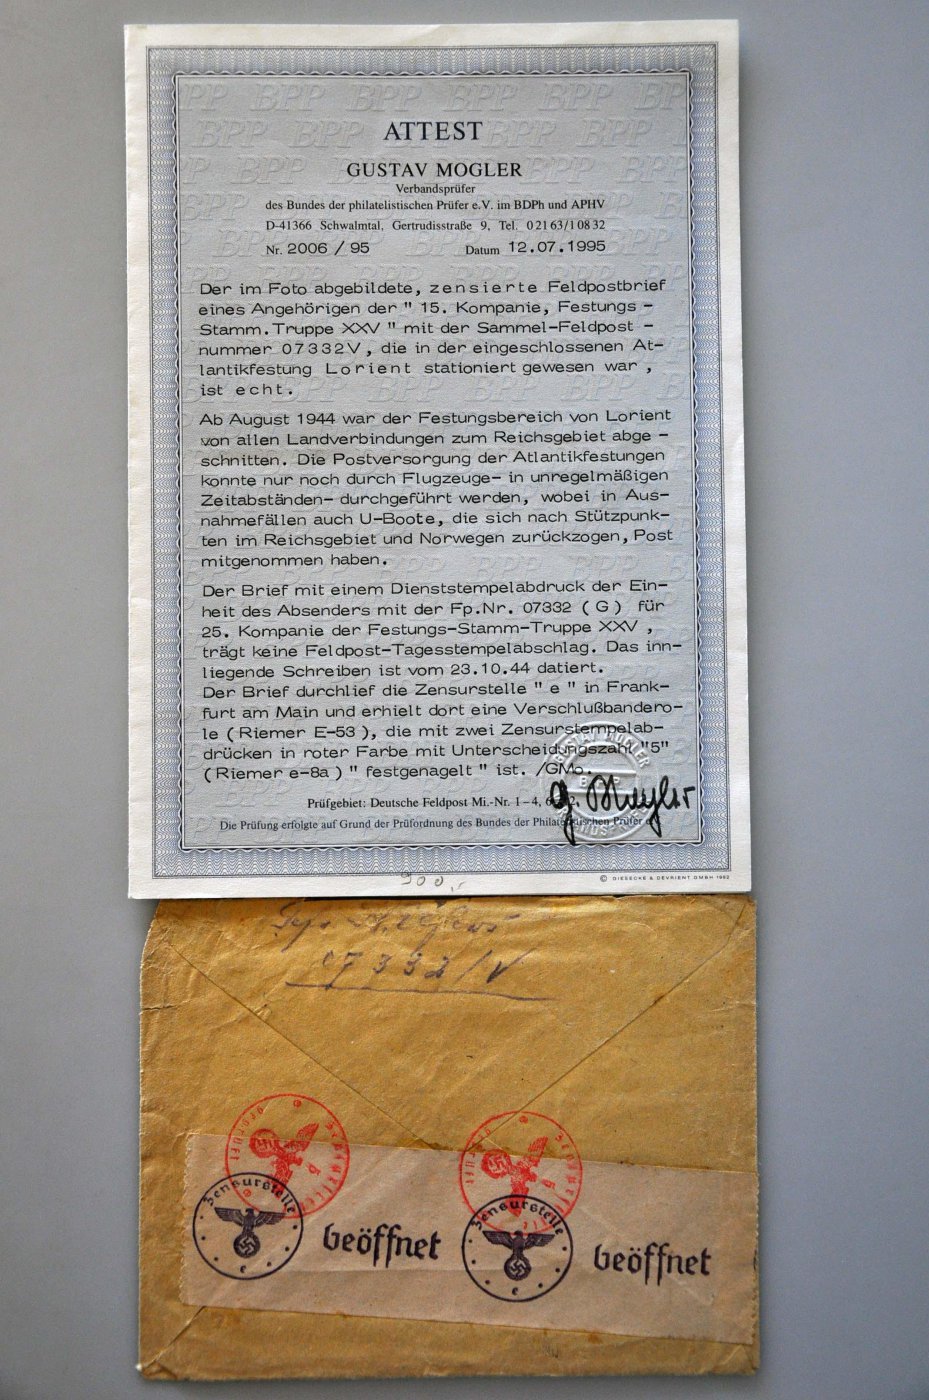 ATTEST
GUSTAV MOGLER
Verbandsprüfer
des Bundes der philatelistischen Prüfer e.V. im BDPh und APHV
D-41366 Schwalmtal, Gertrudisstraße 9, Tel. 0 21 63/1 08 32
Nr. 2006 / 95 Datum 12.07.1995
Der im Foto abgebildete, zensierte Feldpostbrief
eines Angehörigen der " 15. Kompanie, Festungs -
Stamm. Truppe XXV " mit der Sammel-Feldpost -
nummer 07332V, die in der eingeschlossenen At-
lantikfestung Lorient stationiert gewesen war ,
ist echt.
Ab August 1944 war der Festungsbereich von Lorient
von allen Landverbindungen zum Reichsgebiet abge -
schnitten. Die Postversorgung der Atlantikfestungen
konnte nur noch durch Flugzeuge- in unregelmäßigen
Zeitabständen- durchgeführt werden, wobei in Aus-
nahmefällen auch U-Boote, die sich nach Stützpunk-
ten im Reichsgebiet und Norwegen zurückzogen, Post
mitgenommen haben.
Der Brief mit einem Dienststempelabdruck der Ein-
heit des Absenders mit der Fp.Nr. 07332 ( G ) für
25. Kompanie der Festungs-Stamm-Truppe XXV ,
trägt keine Feldpost-Tagesstempelabschlag. Das inn-
liegende Schreiben ist vom 23.10.44 datiert.
Der Brief durchlief die Zensurstelle " e " in Frank-
furt am Main und erhielt dort eine Verschlußbandero-
le ( Riemer E-53 ), die mit zwei Zensurstempelab-
drücken in roter Farbe mit Unterscheidungszahl "5"
( Riemer e-8a ) " festgenagelt " ist. /GMo.
Prüfgebiet: Deutsche Feldpost Mi.-Nr. 1 – 4,
Die Prüfung erfolgte auf Grund der Prüfordnung des Bundes der Philatelistischen Prüfer e.V.
© GIESECKE & DEVRIENT GMBH 1992
900
07332/V
Zensurstelle
e
geöffnet
Zensurstelle
e
geöffnet